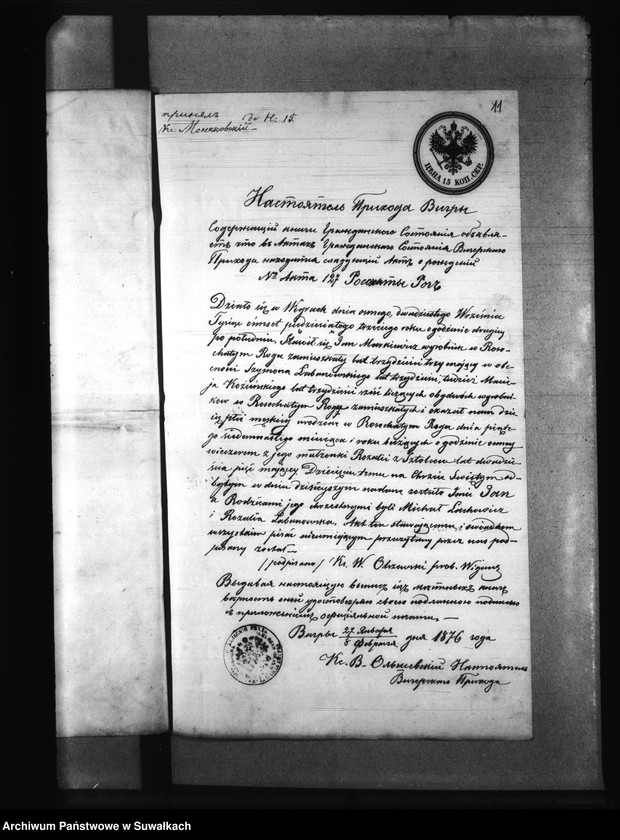 11
принялъ до № 15
Кс: Монковскій
ЦѢНА 15 КОП. СЕР.
Настоятель Прихода Вигры
Содержащій книги Гражданскаго Состоянія объявля-
етъ что въ Актахъ Гражданскаго Состоянія Вигерскаго
Прихода находится слѣдующій Актъ о рожденіи
№ Акта 127 Росохаты Рогъ
Działo się w Wygrach dnia ośmego dwudziestego Września
Tysiąc ośmset pięćdziesiątego trzeciego roku o godzinie drugiej
po południu. Stawił się Jan Markiewicz wyrobnik w Roso-
chatym Rogu zamieszkały lat trzydzieści trzy mający w ob-
cności Szymona Lubanowskiego lat trzydzieści, tudzież Macie-
ja Kozińskiego lat trzydzieści sześć liczących obydwóch wyrobni-
ków w Rosochatym Rogu zamieszkałych i okazał nam Dzie-
cię płci męskiej urodzone w Rosochatym Rogu dnia piąte-
go siedemnastego miesiąca i roku bieżących o godzinie ósmej
wieczorem z jego małżonki Rozalii z lat dwadzie-
ścia pięć mającej Dziecięciu temu na Chrzcie Świętym od-
bytym w dniu dzisiejszym nadane zostało Imie Jan
a Rodzicami jego chrzestnymi byli Michał Lachowicz
i Rozalia Lubanowska. Akt ten stawającemu i świadkom
wszystkim pisać nieumiejącym przeczytany przez nas pod-
pisany został
/podpisano/ Ks. W. Olszewski prob. Wigiers.
Выдавая настоящую выпись изъ метыхъ книгъ
вѣрность оной удостовѣряю своею подписью
съ приложеніемъ официальной печати.
Вигры 27 Января
8 Февраля дня 1876 года
Кс. В. Ольшевскій Настоятель
Вигерскаго Прихода
Archiwum Państwowe w Suwałkach